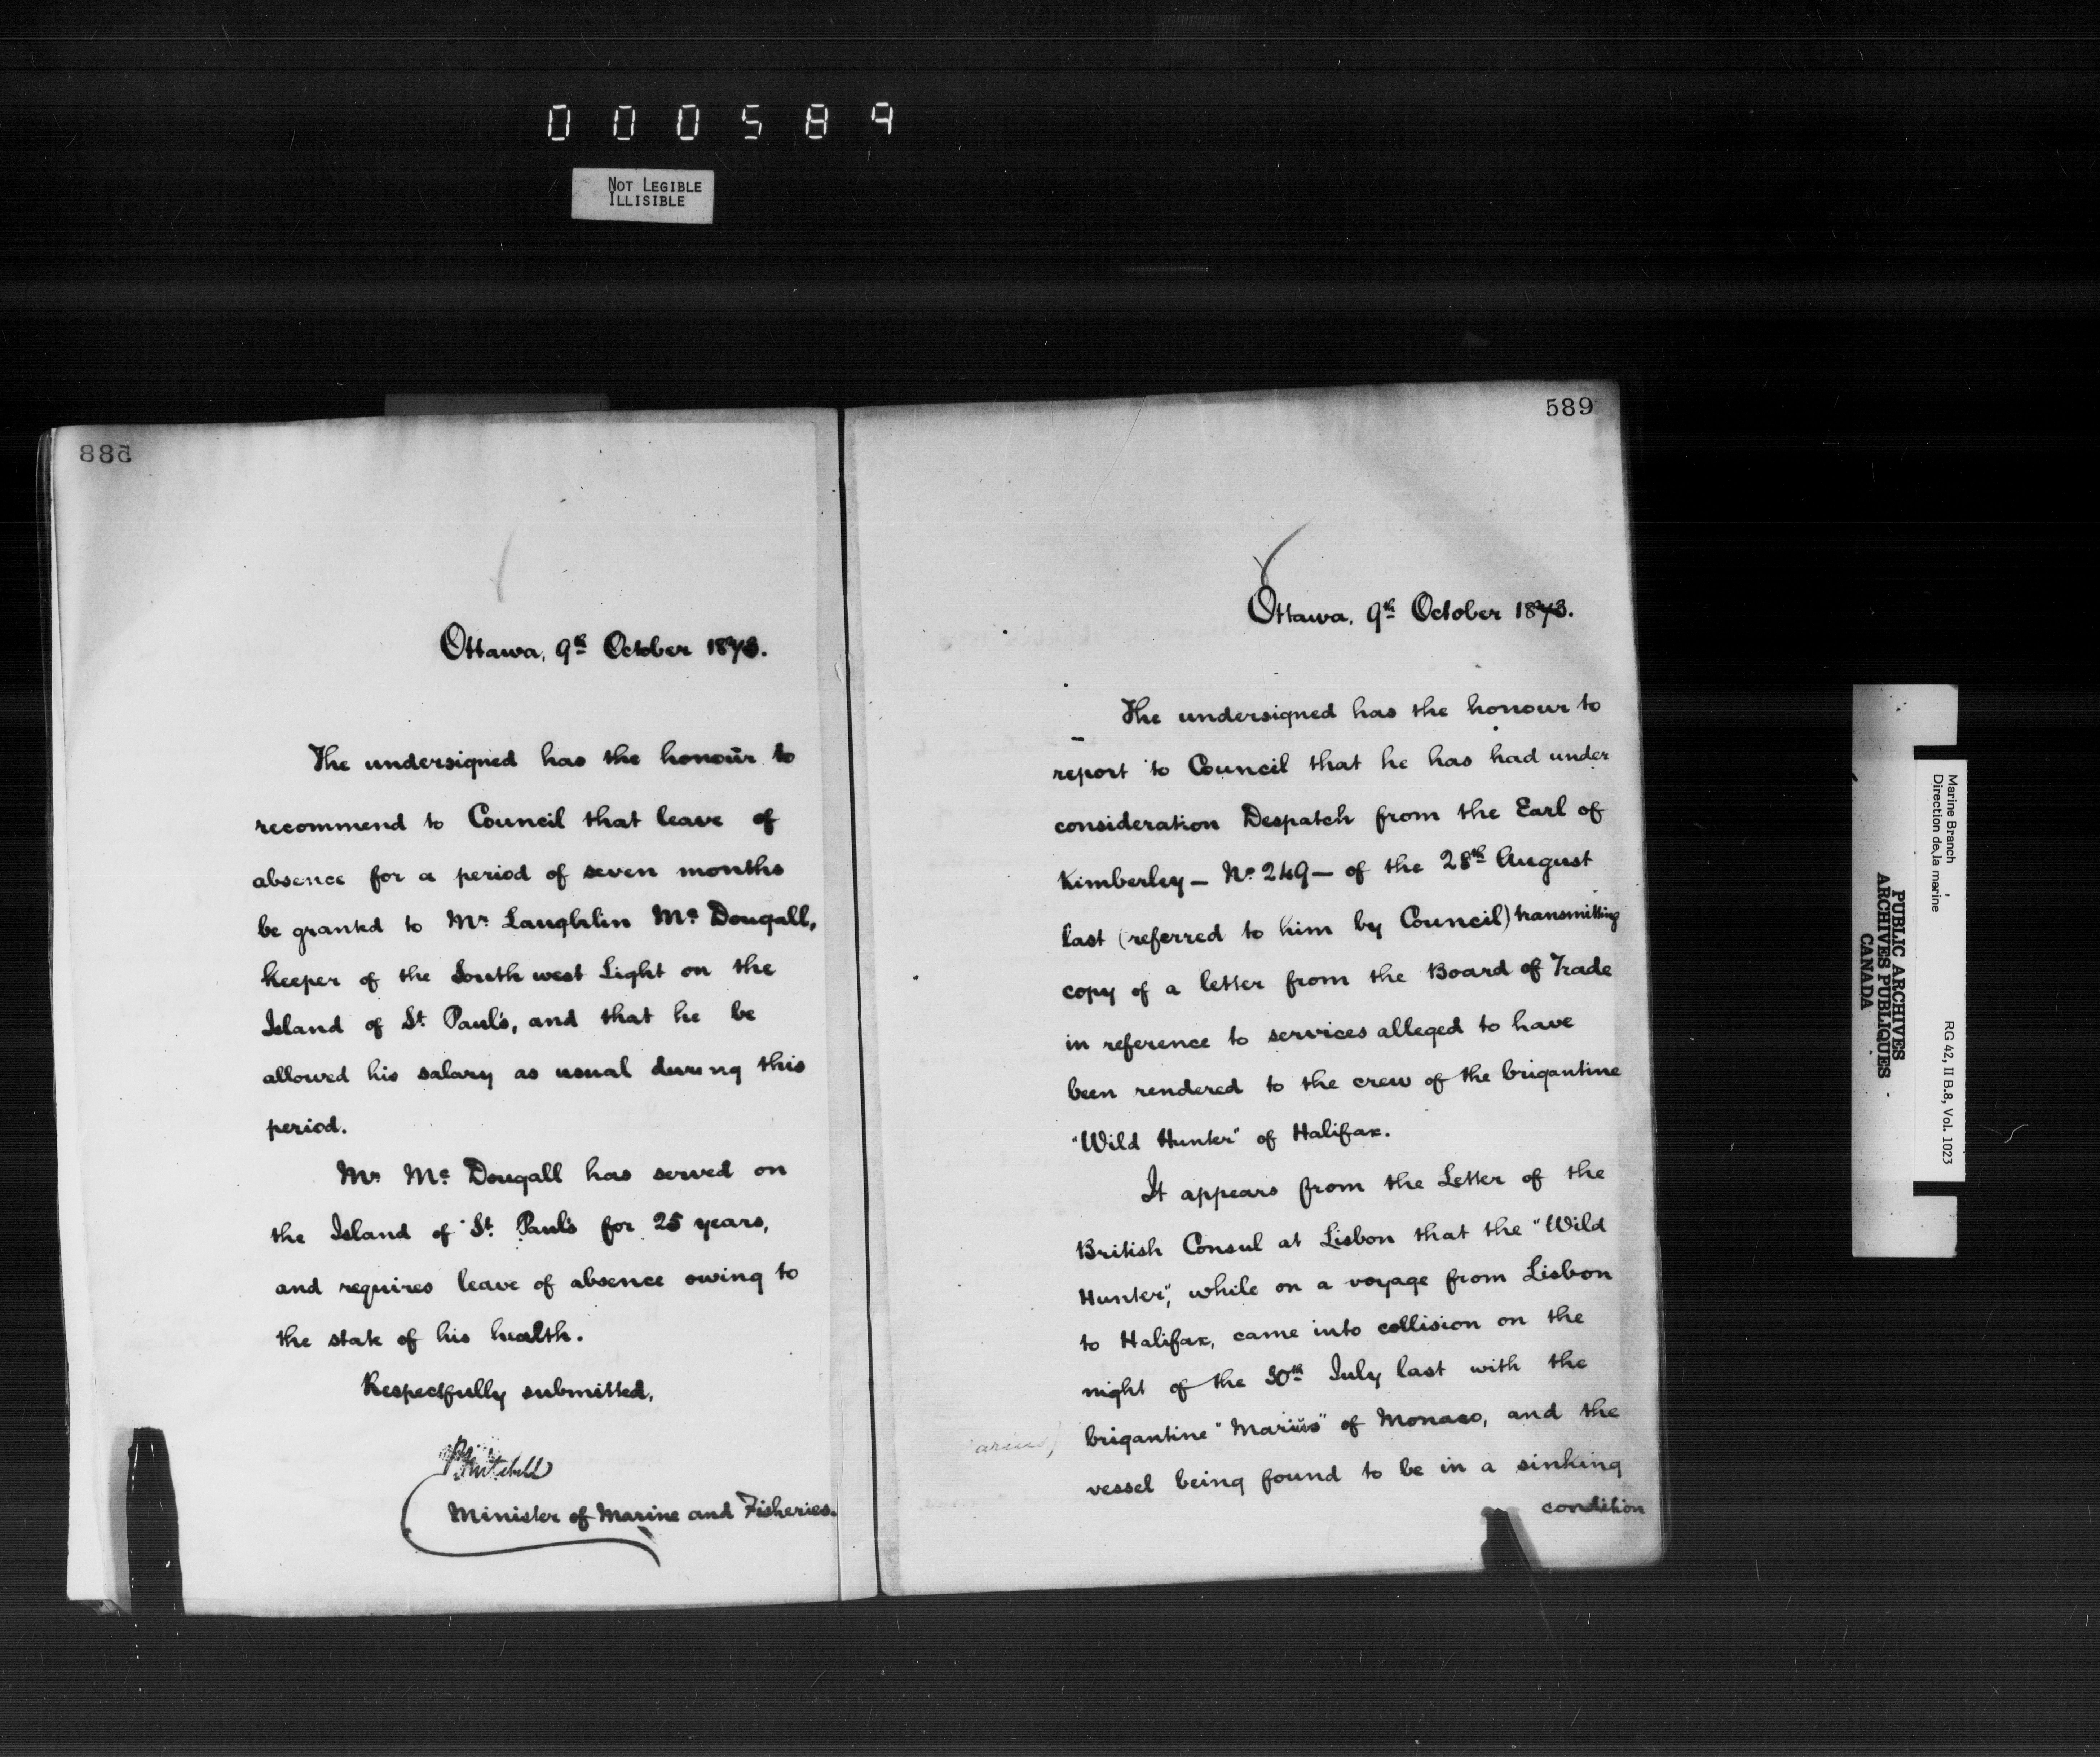 000589
NOT LEGIBLE
ILLISIBLE
588
Ottawa, 9th October 1873.
The undersigned has the honour to
recommend to Council that leave of
absence for a period of seven months
be granted to Mr Laughlin Mc Dougall,
keeper of the South west Light on the
Island of St. Paul's, and that he be
allowed his salary as usual during this
period.
Mr Mc Dougall has served on
the Island of St. Paul's for 25 years,
and requires leave of absence owing to
the state of his health.
Respectfully submitted,
P Mitchell
Minister of Marine and Fisheries.
589
Ottawa, 9th October 1873.
The undersigned has the honour to
report to Council that he has had under
consideration Despatch from the Earl of
Kimberley – No 249 – of the 28th August
last (referred to him by Council) transmitting
copy of a letter from the Board of Trade
in reference to services alleged to have
been rendered to the crew of the brigantine
"Wild Hunter" of Halifax.
It appears from the Letter of the
British Consul at Lisbon that the "Wild
Hunter", while on a voyage from Lisbon
to Halifax, came into collision on the
night of the 30th July last with the
brigantine "Marius" of Monaco, and the
vessel being found to be in a sinking
condition
arius)
Marine Branch
Direction de la marine
RG 42, II B.8, Vol. 1023
PUBLIC ARCHIVES
ARCHIVES PUBLIQUES
CANADA